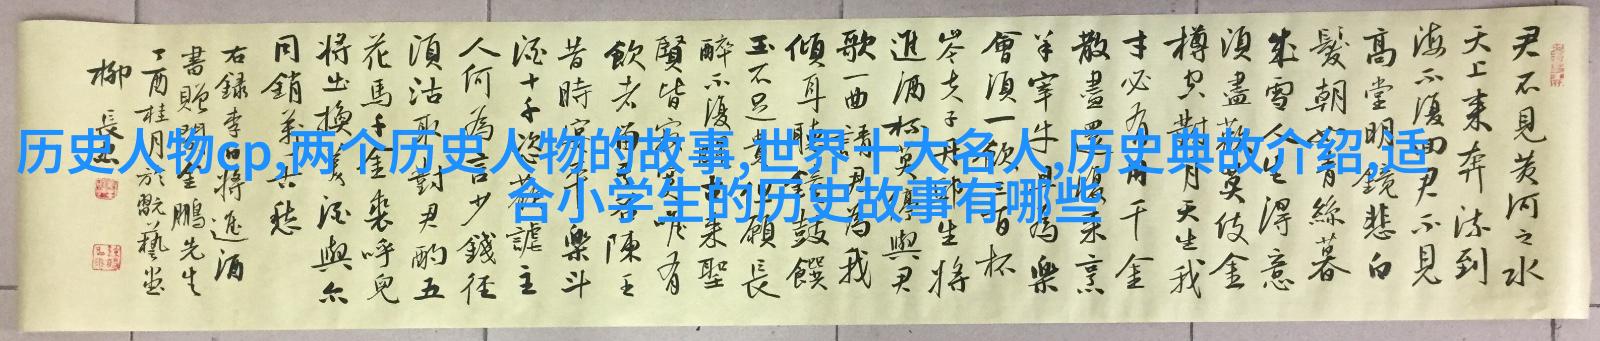 历史人物cp,两个历史人物的故事,世界十大名人,历史典故介绍,适
合小学生的历史故事有哪些
君不見黄河之水
天上来奔流到
海不復回君不見
高堂明鏡悲白
髮朝如青絲暮
成雪人生得意
須盡歡莫使金
樽空對月天生我
才必有用千金
散盡還復来烹
羊宰牛且為樂
會須一飲三百杯
岑夫子丹邱生將
進酒杯莫停與君
歌一曲請君為我
傾耳聽鐘鼓饌
玉不足貴但願長
醉不復醒古来聖
賢皆寂寞唯有
飲者留其名陳王
昔時宴平樂斗
酒十千恣歡謔主
人何為言少錢徑
須沽取對君酌五
花馬千金裘呼兒
將出換美酒與尔
同銷萬古愁
右録李白將進酒
書贈金鵬先生
丁酉桂月於翫藝堂
柳長忠